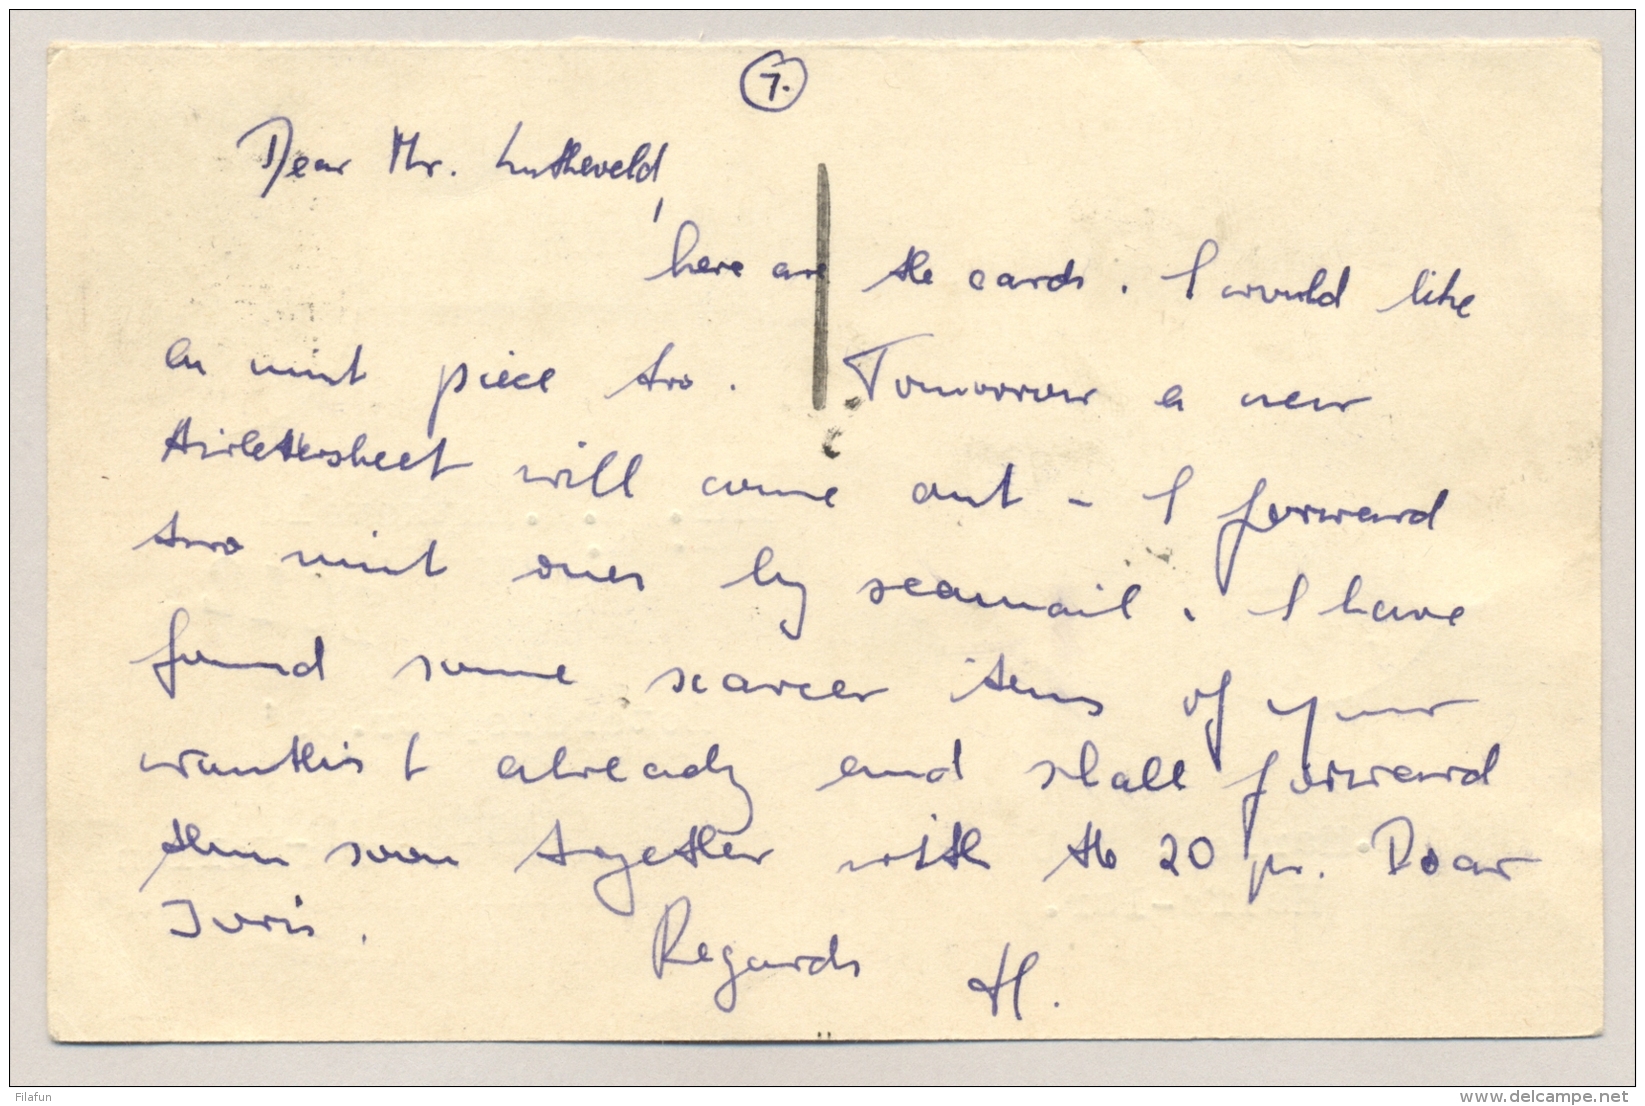 7.
Dear Mr. Lutheveld,
here are the cards. I would like
a mint piece too. Tomorrow a new
Airlettersheet will come out - I forward
two mint ones by seamail. I have
found some scarcer items of your
wantlist already and shall forward
them soon together with the 20 pr.
Regards H.
Filafun
www.delcampe.net